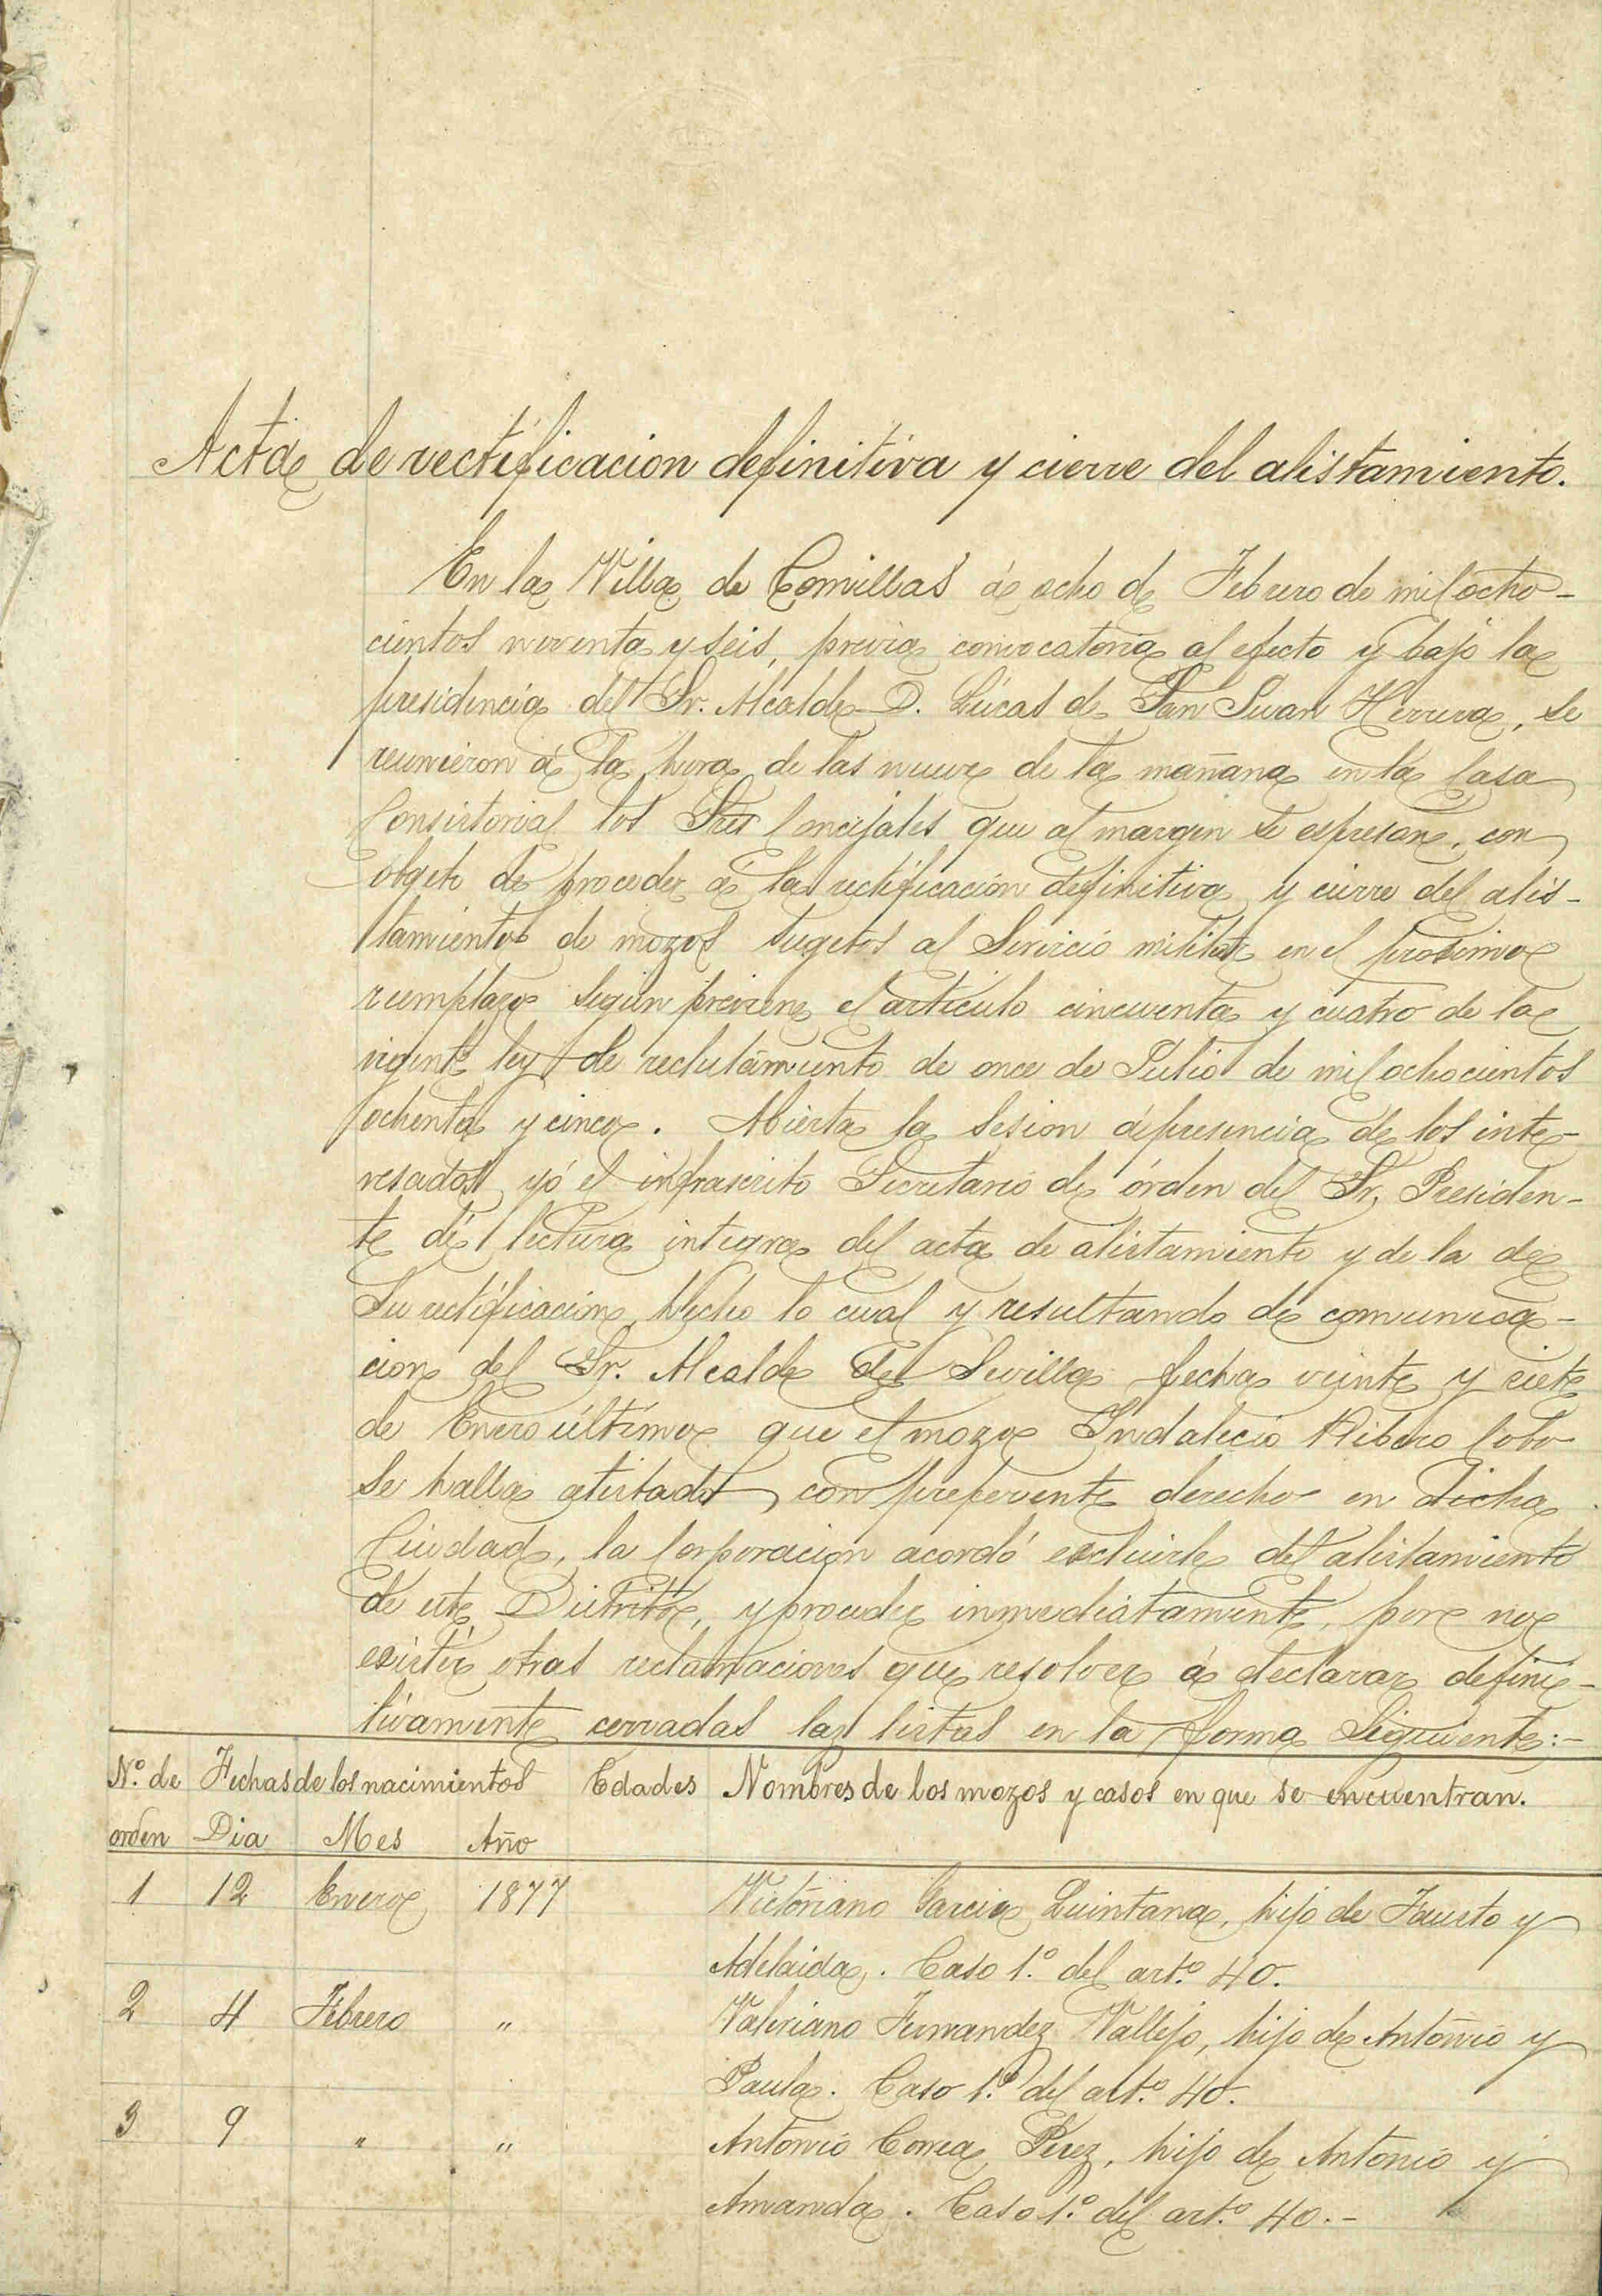 Acta de rectificacion definitiva y cierre del alistamiento.
En la Villa de Comillas á ocho de Febrero de mil ocho-
cientos noventa y seis, previa convocatoria al efecto y bajo la
presidencia del Sr. Alcalde D. Lúcas de San Juan Herrera, se
reunieron á la hora de las nueve de la mañana en la Casa
Consistorial los Sres Concejales que al margen se espresan, con
objeto de proceder á la rectificación definitiva y cierre del alis-
tamiento de mozos sugetos al Servicio militar en el proximo
reemplazo según previene el artículo cincuenta y cuatro de la
vigente ley de reclutamiento de once de Julio de mil ochocientos
ochenta y cinco. Abierta la sesion á presencia de los inte-
resados yó el infrascrito Secretario de órden del Sr. Presiden-
te dí lectura integra del acta de alistamiento y de la de
su rectificación, hecho lo cual y resultando de comunica-
cion del Sr. Alcalde de Sevilla fecha veinte y siete
de Enero último que el mozo Indalecio Ribero Cobo
se halla alistado con preferente derecho en dicha
Ciudad, la Corporación acordó excluirle del alistamiento
de este Distrito, y proceder inmediatamente, por no
existir otras reclamaciones que resolver á declarar defini-
tivamente cerradas las listas en la forma siguiente:-
Nº. de Fechas de los nacimientos Edades Nombres de los mozos y casos en que se encuentran.
orden Dia Mes Año
1 12 Enero 1877 Victoriano Garcia Quintana, hijo de Fausto y
Adelaida. Caso 1.º del art.º 40.
2 4 Febrero " Valeriano Fernandez Vallejo, hijo de Antonio y
Paula. Caso 1.º del art.º 40.
3 9 " " Antonio Correa Perez, hijo de Antonio y
Amanda. Caso 1.º del art.º 40.-